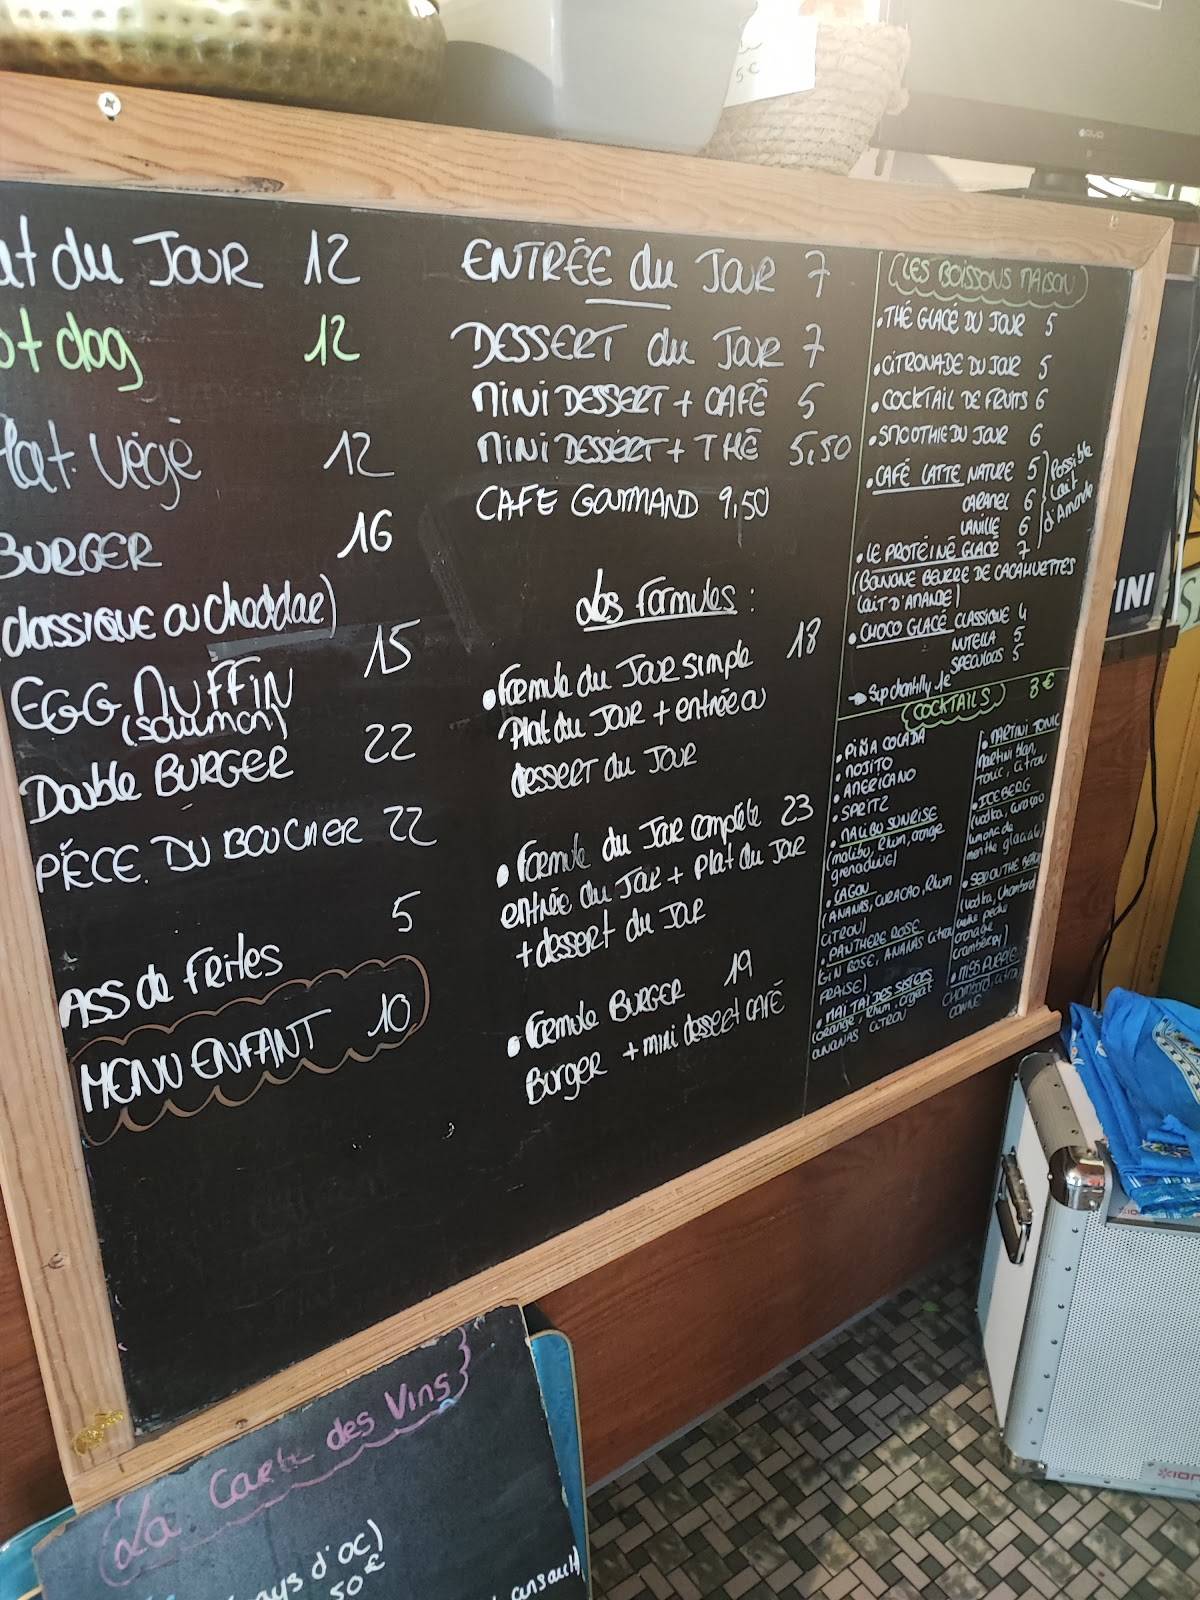 at du JOUR 12
ot dog 12
Plat végé 12
BURGER 16
(classique ou Cheddar)
EGG MUFFIN 15
(saumon)
Double BURGER 22
PIÈCE DU BOUCHER 22
ASS de FRITES 5
MENU ENFANT 10
ENTRÉE du JOUR 7
DESSERT du JOUR 7
MINI DESSERT + CAFÉ 5
MINI DESSERT + THÉ 5,50
CAFE GOURMAND 9,50
Les formules :
• Formule du JOUR simple 18
Plat du JOUR + entrée ou
dessert du JOUR
• Formule du JOUR complète 23
entrée du JOUR + Plat du JOUR
+ dessert du JOUR
• Formule BURGER 19
Burger + mini dessert CAFÉ
(LES BOISSONS MAISON)
• THÉ GLACÉ DU JOUR 5
• CITRONADE DU JOUR 5
• COCKTAIL DE FRUITS 6
• SMOOTHIE DU JOUR 6
• CAFÉ LATTE NATURE 5
CARAMEL 6
VANILLE 6
Possible
Lait
d'Amande
• LE PROTÉINÉ GLACÉ 7
(BANANE BEURRE DE CACAHUETTES
LAIT D'AMANDE)
• CHOCO GLACÉ CLASSIQUE 4
NUTELLA 5
SPECULOOS 5
Sup chantilly 1€
(COCKTAILS) 8€
• PIÑA COLADA
• MOJITO
• AMERICANO
• SPRITZ
• MALIBU SUNRISE
(malibu, Rhum, orange
grenadine)
• LAGON
(ANANAS, CURACAO, Rhum
CITRON)
• PANTHERE ROSE
(GIN ROSE, ANANAS citron
FRAISE)
• MAI TAI DES SISTERS
(orange, Rhum, orgeat
ANANAS CITRON
• MARTINI TONIC
Martini blan,
Tonic, citron
• ICEBERG
(vodka, curacao
limonade
menthe glaciale)
(vodka, Chambord
orange
cranberry)
• MISS PURPLE
Chambord, citron
La Carte des Vins
ays d'OC)
50€
INI
5€